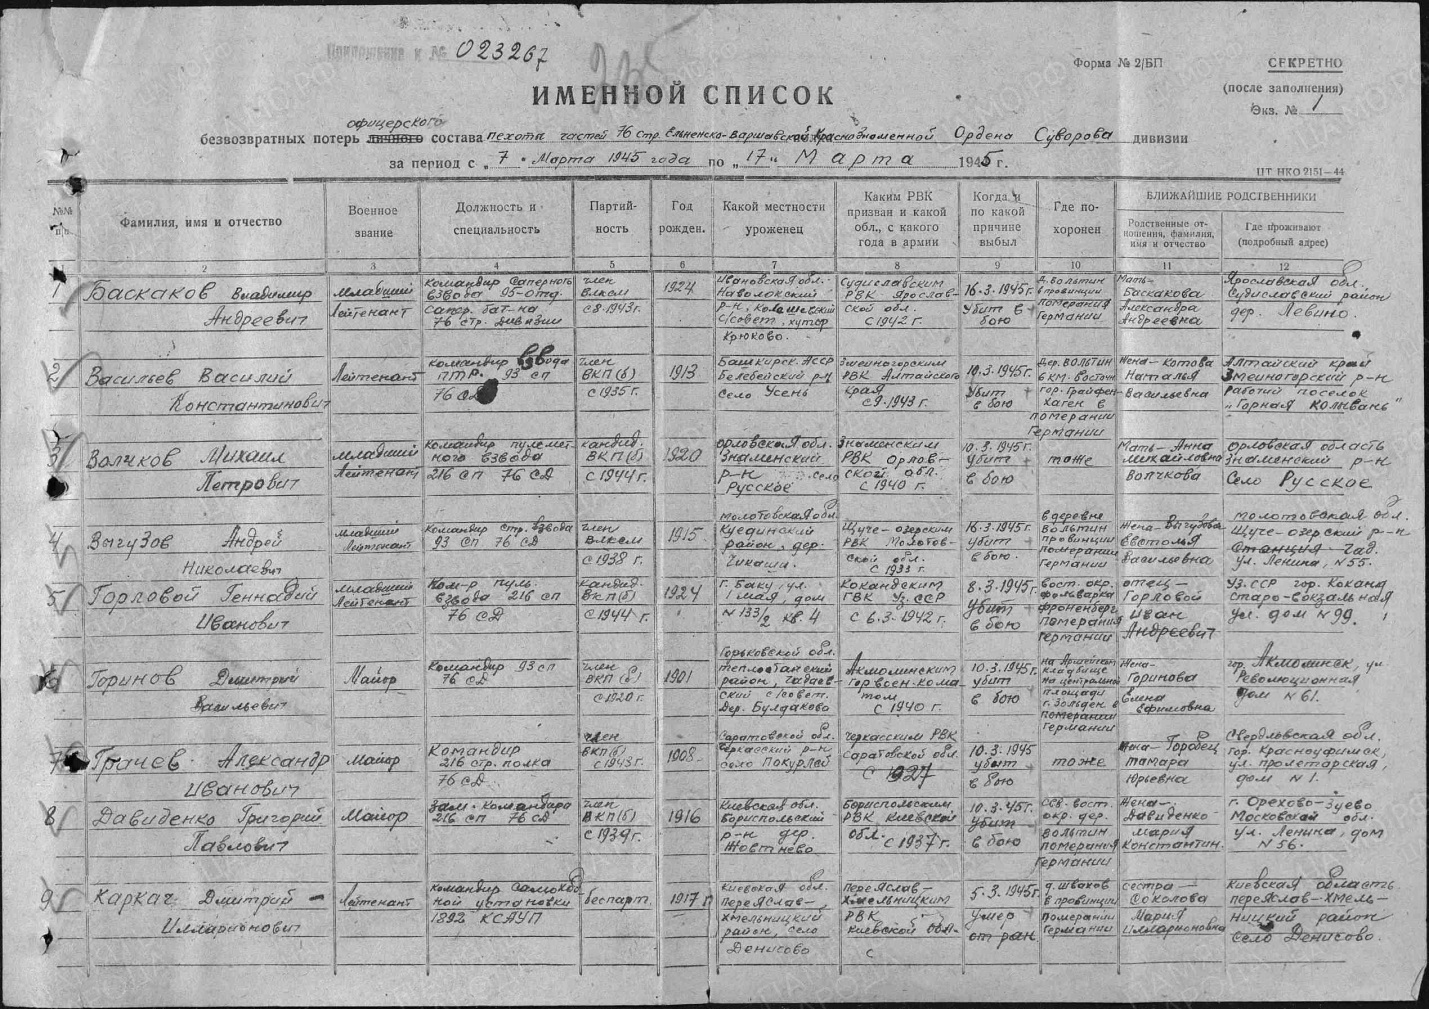 Приложение к № 023267
235
Форма № 2/БП
СЕКРЕТНО
(после заполнения)
Экз. № 1
ИМЕННОЙ СПИСОК
офицерского
безвозвратных потерь личного состава пехоты частей 76 Стр. Ельненско-Варшавской Краснознаменной Ордена Суворова дивизии
за период с „7" Марта 1945 года по „17" Марта 1945 г.
ЦТ НКО 2151—44
№№ п/п
Фамилия, имя и отчество
Военное звание
Должность и специальность
Партийность
Год рожден.
Какой местности уроженец
Каким РВК призван и какой обл., с какого года в армии
Когда и по какой причине выбыл
Где похоронен
БЛИЖАЙШИЕ РОДСТВЕННИКИ
Родственные отношения, фамилия, имя и отчество
Где проживают (подробный адрес)
1 2 3 4 5 6 7 8 9 10 11 12
1
Баскаков Владимир
Андреевич
Младший
Лейтенант
Командир Саперного
взвода 95-отд.
сапер. бат-на
76 стр. Дивизии
член
Влксм
с 8.1943г.
1924
Ивановская обл.
Наволокский
р-н, Колшевский
с/совет, хутор
Крюково.
Судиславским
РВК Ярослав-
ской обл.
с 1942 г.
16.3.1945г.
Убит в
бою
д. Вольтин
в провинции
померания
Германии
Мать-
Баскакова
Александра
Андреевна
Ярославская обл.
Судиславский район
дер. Левино.
2
Васильев Василий
Константинович
Лейтенант
Командир взвода
ПТР. 93 сп
76 сД
член
ВКП(б)
с 1935 г.
1913
Башкирск. АССР
Белебейский р-н
село Усень
Змеиногорским
РВК Алтайского
края
с 9.1943 г.
10.3.1945г.
Убит
в бою
Дер. Вольтин
6 км. восточн
гор. Грайфен-
хаген в
померании
Германии
Жена - Котова
Наталья
Васильевна
Алтайский край
Змеиногорский р-н
Рабочий поселок
„Горная Колывань"
3
Волчков Михаил
Петрович
Младший
Лейтенант
Командир пулемет-
ного взвода
216 сп 76 сД
кандид.
ВКП(б)
с 1944 г.
1920
Орловская обл.
Знаменский
р-н село
Русское
Знаменским
РВК Орлов-
ской обл.
с 1940 г.
10.3.1945г.
убит
в бою
тоже
Мать - Анна
Михайловна
Волчкова
Орловская область
Знаменский р-н
Село Русское
4
Выгузов Андрей
Николаевич
Младший
Лейтенант
Командир стр. взвода
93 сп 76 сД
член
Влксм
с 1938 г.
1915
Молотовская обл.
Куединский
район, дер.
Чикаши
Щуче-озерским
РВК Молотов-
ской обл.
с 1933 г.
16.3.1945г.
убит
в бою.
в деревне
Вольтин
провинции
померании
Германии
Жена - Выгузова
Евстолья
Васильевна
Молотовская обл.
Щуче-озерский р-н
Станция - Чад.
ул. Ленина, N 55.
5
Горловой Геннадий
Иванович
Младший
Лейтенант
Ком-р пуль.
взвода 216 сп
76 сД
Кандид.
ВКП(б)
с 1944 г.
1924
г. Баку, ул.
1 мая, дом
N 133/2 кв. 4
Кокандским
ГВК Уз. ССР
с 6.3.1942 г.
8.3.1945г.
Убит
в бою
вост. окр.
фольварка
Фроненберг
померания
Германии
отец -
Горловой
Иван
Андреевич
Уз. ССР гор. Коканд
Старо-вокзальная
ул. дом N 99.
6
Горинов Дмитрий
Васильевич
Майор
Командир 93 сп
76 сД
член
ВКП(б)
с 1920 г.
1901
Горьковской обл.
теплостанский
район, Чадаев-
ский с/совет.
Дер. Булдаково
Акмолинским
горвоен.кома-
том
с 1940 г.
10.3.1945г.
убит
в бою
на Армейском
кладбище
на центральной
площади
г. Зольден в
померании
Германии
Жена-
Горинова
Елена
Ефимовна
гор. Акмолинск, ул
Революционная
дом N 61.
7
Грачев Александр
Иванович
Майор
Командир
216 стр. полка
76 сД
член
ВКП(б)
с 1943 г.
1908
Саратовской обл.
Черкасский р-н
село Покурлей
Черкасским РВК
Саратовской обл.
с 1927
10.3.1945
убит
в бою
тоже
Жена - Горобец
Тамара
Юрьевна
Свердловская обл.
гор. Красноуфимск,
ул. пролетарская,
дом N 1.
8
Давиденко Григорий
Павлович
Майор
Зам. командира
216 сп 76 сД
член
ВКП(б)
с 1939 г.
1916
Киевская обл.
Бориспольский
р-н дер.
Жовтнево
Бориспольским
РВК Киевской
обл. с 1937 г.
10.3.45г.
Убит
в бою
сев. вост.
окр. дер.
Вольтин
померания
Германии
Жена-
Давиденко
Мария
Константин.
г. Орехово-Зуево
Московской обл.
ул. Ленина, дом
N 56.
9
Харкач Дмитрий
Илларионович
Лейтенант
Командир самоход-
ной установки
1892 КСАУП
беспарт.
1917 г
Киевская обл.
переяслав-
хмельницкий
район, село
Денисово
переяслав-
хмельницким
РВК
киевской обл.
с
5.3.1945г.
умер
от ран
д. Швахов
в провинции
померании
Германии
сестра -
Соколова
Мария
Илларионовна
Киевская область
переяслав-хмель-
ницкий район
село Денисово.